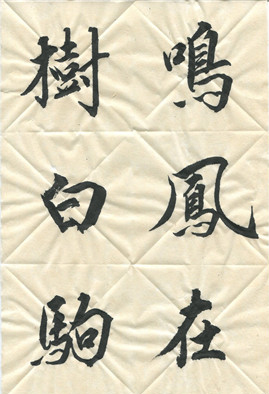 鳴鳳在
樹白駒